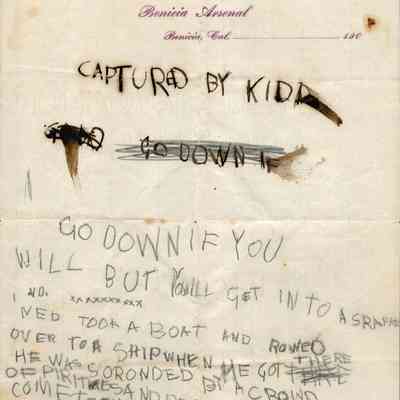 Benicia Arsenal
Benicia, Cal. 190
CAPTURED BY KIDD
GO DOWN IF
GO DOWN IF YOU
WILL BUT YOU WILL GET INTO A
I NO. xxxxxxxxxx
NED TOOK A BOAT AND ROWED
OVER TO A SHIP WHEN HE GOT THERE
HE WAS SORONDED BY A CROWD
OF PIRITES AND
COME